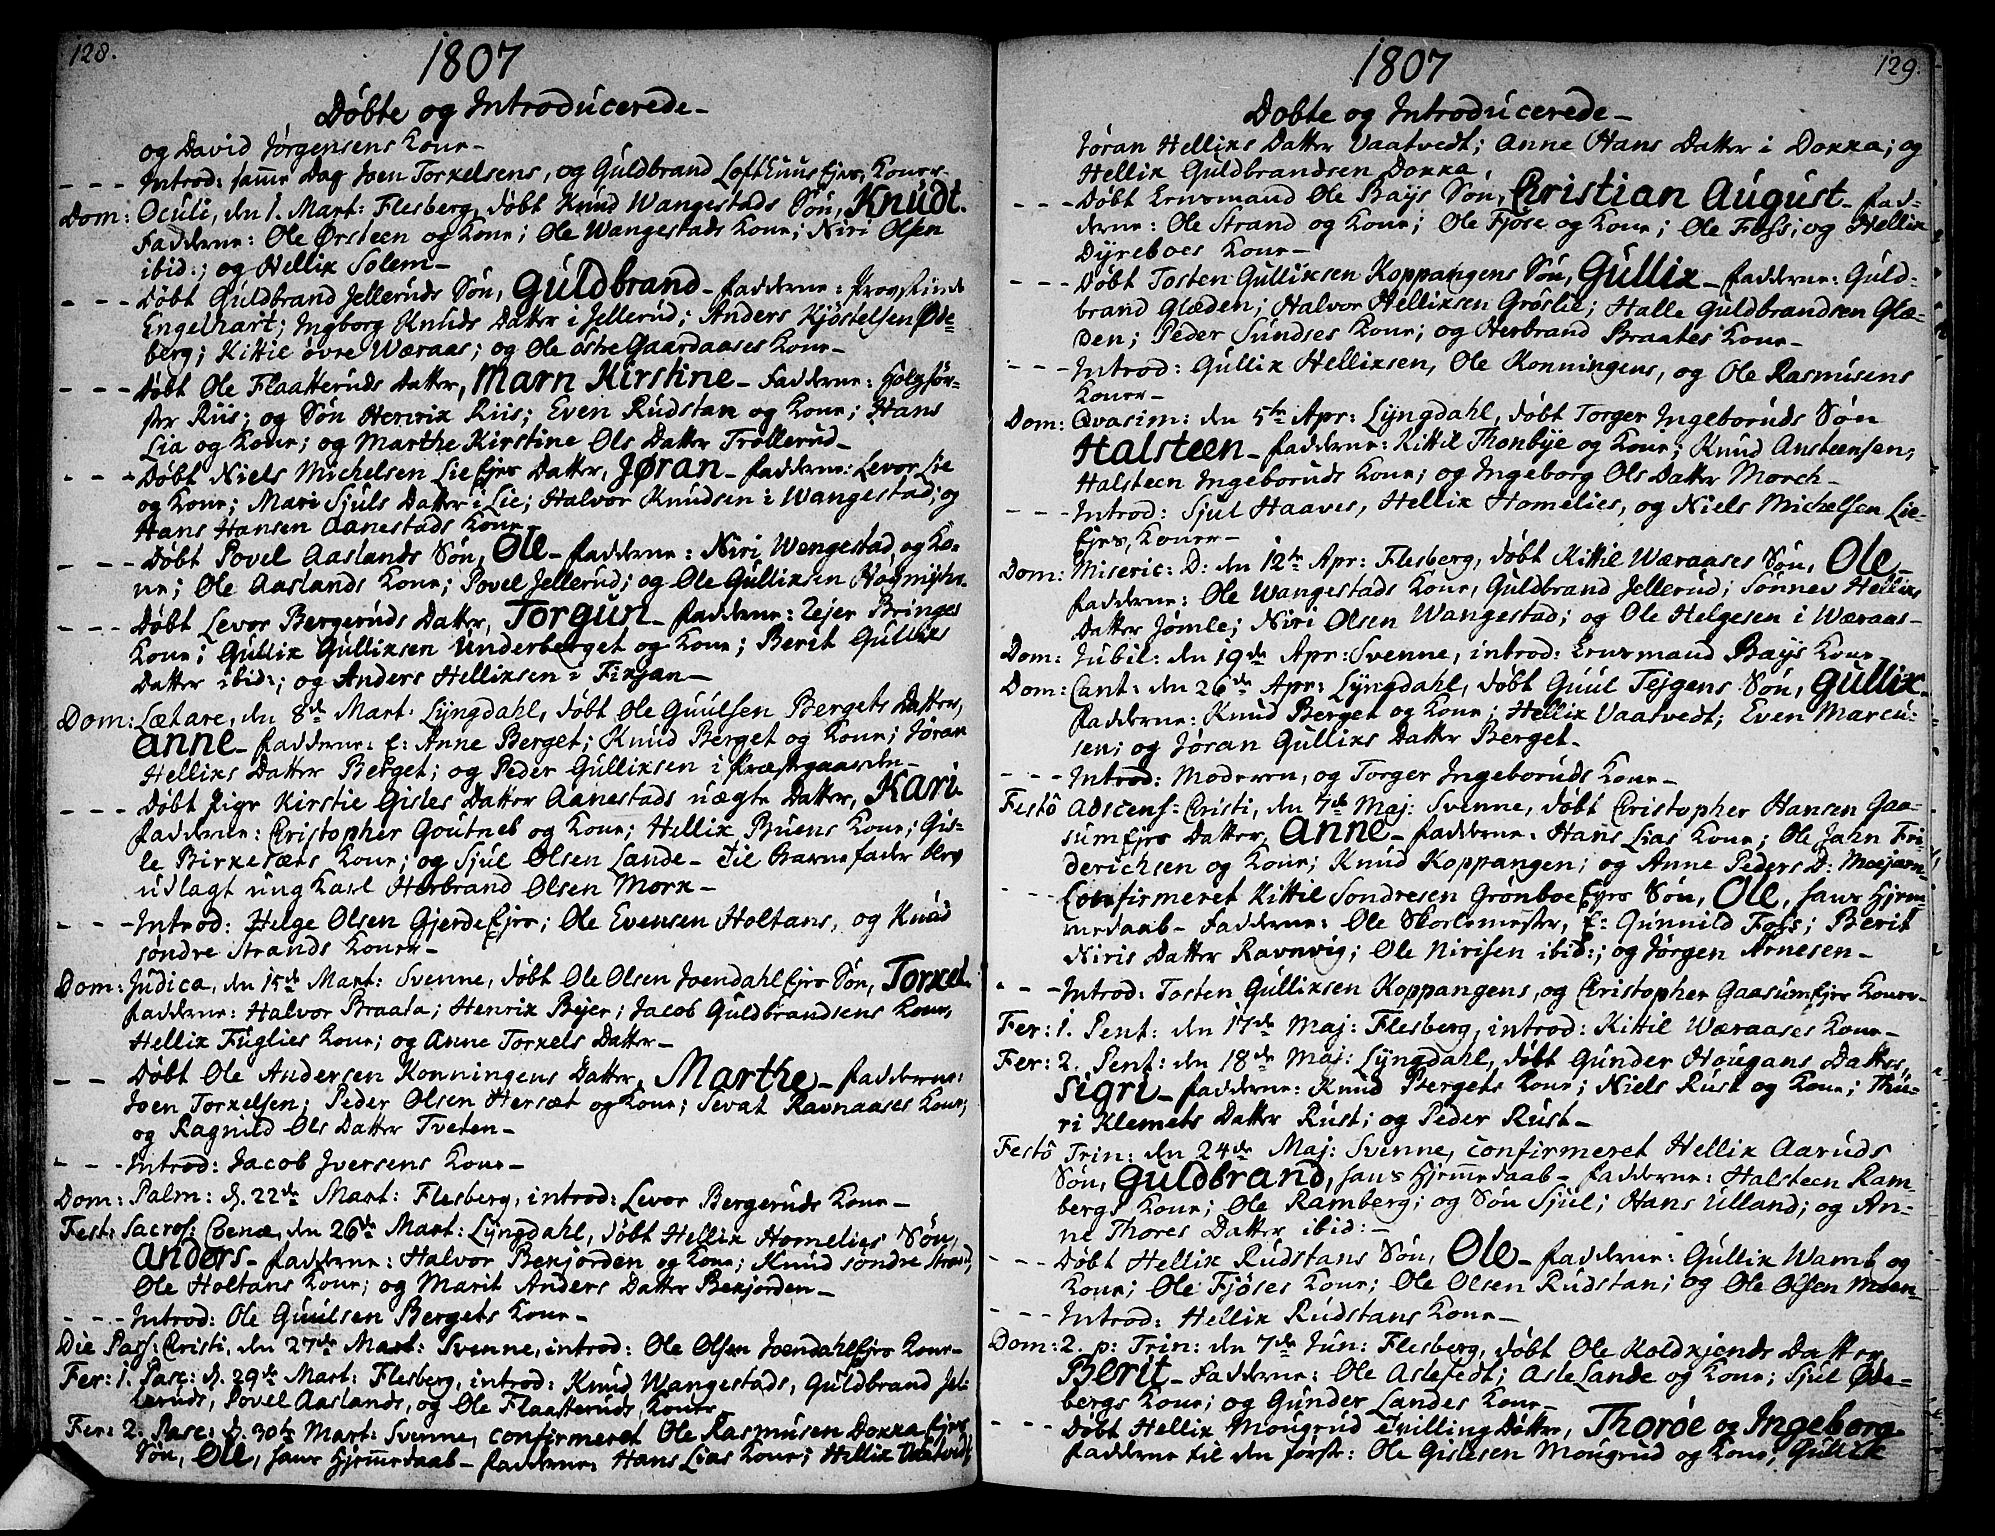 128.
1807
Døbte og Introducerede-
og David Jørgensens Kone-
- - - Introd: samme Dag Joen Torkelsens, og Guldbrand Lofthuus Ejer, Koner-
Dom: Oculi, den 1. Mart: Flesberg, døbt Knud Wangestads Søn, Knudt.
Fadderne: Ole Ørsteen og Kone; Ole Wangestads Kone; Niri Olsen
ibid:; og Hellik Solem-
- - - Døbt Guldbrand Jelleruds Søn, Guldbrand- Fadderne: Provstinde
Engelhart; Ingborg Knuds Datter i Jellerud; Anders Kjøstelsen Øde-
berg; Kittil øvre Wæraas; og Ole østre Gaardaases Kone-
- - - Døbt Ole Flaatteruds Datter, Marn Kirstine- Fadderne: Holzfør-
ster Riis; og Søn Henrik Riis; Even Rudstan og Kone; Hans
Lia og Kone; og Marthe Kirstine Ols Datter Trollerud-
- - - Døbt Niels Michelsen Lie Ejer Datter, Jøran- Fadderne: Levor Lie
og Kone; Mari Sjuls Datter i Lie; Halvor Knudsen i Wangestad; og
Hans Hansen Aanestads Kone-
- - - Døbt Povel Aaslands Søn, Ole- Fadderne: Niri Wengestad og Ko-
ne; Ole Aaslands Kone; Povel Jellerud; og Ole Gulliksen
- - - Døbt Levor Bergeruds Datter, Torgun- Fadderne: Zejer Bringes
Kone; Gullik Gulliksen Underberget og Kone; Berit Gulliks
Datter ibid:; og Anders Helliksen i Fixjan-
Dom: Lætare, den 8de Mart: Lyngdahl, døbt Ole Guulsen Bergets Datter,
Anne- Fadderne: E: Anne Berget; Knud Berget og Kone; Jøran
Helliks Datter Berget; og Peder Gulliksen i Præstegaarden-
- - - Døbt Pige Kirstie Gisles Datter Aanestads uægte Datter, Kari-
Fadderne: Christopher Goutneb og Kone; Hellik Buens Kone; Gis-
le Birkesæts Kone; og Sjul Olsen Lande- Til Barnefader blev
udlagt ung Karl Herbrand Olsen Mork-
- - - Introd: Helge Olsen Gjerde Ejers; Ole Evensen Holtans, og Knud
søndre Strands Koner-
Dom: Judica, den 15de Mart: Svenne, døbt Ole Olsen Joendahl Ejers Søn, Torkel-
Fadderne: Halvor Braata; Henrik Bejer; Jacob Guldbrandsens Kone,
Hellik Fuglies Kone; og Anne Torkels Datter-
- - Døbt Ole Andersen Konningens Datter, Marthe- Fadderne:
Joen Torkelsen; Peder Olsen Hersæt og Kone; Sevat Ravnaases Kone;
og Ragnild Ols Datter Tveten-
- - - Introd: Jacob Iversens Kone-
Dom: Palm: d. 22de Mart: Flesberg, introd: Levor Bergeruds Kone-
Fest: Sacros: Coenæ, den 26de Mart: Lyngdahl, døbt Hellik Homelies Søn,
Anders- Fadderne: Halvor Bekjorden og Kone; Knud søndre Strand,
Ole Holtans Kone; og Marit Anders Datter Bekjorden-
- - - Introd: Ole Guulsen Bergets Kone-
Die Pass: Cristi, den 27de Mart: Svenne, introd: Ole Olsen Joendahl Ejers Kone-
Fer: 1. Pasc: d. 29de Mart: Flesberg, introd: Knud Wangestads, Guldbrand Jel-
leruds, Povel Aaslands, og Ole Flaatteruds, Koner-
Fer: 2. Pasc: d. 30te Mart: Svenne, confirmeret Ole Rasmusen Dokka Ejers
Søn, Ole, hans Hjemmedaab- Fadderne: Hans Lias Kone; Hellik Vaatvedt,
129.
1807
Døbte og Introducerede-
Jøran Helliks Datter Vaatvedt; Anne Hans Datter i Dokka; og
Hellik Guldbrandsen Dokka
- - - Døbt Ernsmand Ole Bays Søn, Cristian August- Fad-
derne: Ole Strand og Kone; Ole Fjøse og Kone; Ole Foss; og Hellik
Dyreboes Kone-
- - - Døbt Tosten Gulliksen Koppangens Søn, Gullix- Fadderne: Guld-
brand Glæden; Halvor Helliksen Grøslie; Halle Guldbrandsen Glæ-
den; Peder Sundses Kone; og Herbrand Braates Kone-
- - - Introd: Gullik Helliksen, Ole Konningens, og Ole Rasmusens
Koner-
Dom: Qvasim: den 5te Apr: Lyngdahl, døbt Torger Ingeboruds Søn
Halsteen- Fadderne: Kittil Thonbye og Kone; Knud Ansteensen;
Halsteen Ingeboruds Kone; og Ingeborg Ols Datter Morch-
- - - Introd: Sjul Haaves, Hellik Homelies, og Niels Michelsen Lie-
Ejers, Koner-
Dom: Miseric: D: den 12te Apr: Flesberg, døbt Kittil Wæraases Søn, Ole-
Fadderne: Ole Wangestads Kone, Guldbrand Jellerud; Sønnev Helliks
Datter Jomle; Niri Olsen Wangestad; og Ole Helgesen i Wæraas-
Dom: Jubil: den 19de Apr: Svenne, introd: Ernsmand Bays Kone
Dom: Cant: den 26de Apr: Lyngdahl, døbt Guul Tejgens Søn, Gullik-
Fadderne: Knud Berget og Kone; Hellik Vaatvedt; Even Marcu-
sen; og Jøran Gulliks Datter Berget-
- - - Introd: Moderen, og Torger Ingeboruds Kone-
Festô Adscens: Cristi, den 7de Maj: Svenne, døbt Cristopher Hansen Gaa-
sum Ejers Datter, Anne- Fadderne: Hans Lias Kone; Ole Jahn Fri-
derichsen og Kone; Knud Koppangen; og Anne Peders D:
- - - Confirmeret Kittil Sondresen Grønboe Ejers Søn, Ole, hans Hjem-
medaab- Fadderne: Ole Skolemester, E: Gunnild Foss; Berit
Niris Datter Ravnvig; Ole Nirisen ibid:; og Jørgen Arnesen-
- - - Introd: Tosten Gulliksen Koppangens, og Christopher Gaasum Ejers Koner-
Fer: 1. Pent: den 17de Maj: Flesberg, introd: Kittil Wæraases Kone-
Fer: 2. Pent: den 18de Maj: Lyngdahl, døbt Gunder Hougans Datter,
Sigri- Fadderne: Knud Bergets Kone; Niels Rust og Kone; Thu-
ri Klemets Datter Rust; og Peder Rust-
Festô Trin: den 24de Maj: Svenne, confirmeret Hellik Aaruds
Søn, Guldbrand, hans Hjemmedaab- Fadderne: Halsteen Ram-
bergs Kone; Ole Ramberg; og Søn Sjul; Hans Ulland; og An-
ne Thores Datter ibid:-
- - Døbt Hellik Rudstans Søn, Ole- Fadderne: Gullik Wamb og
Kone; Ole Fjøses Kone; Ole Olsen Rudstan; og Ole Olsen Moen-
- - - Introd: Hellik Rudstans Kone-
Dom: 2. p: Trin: den 7de Jun: Flesberg, døbt Ole Koldkjends Datter
Berit- Fadderne: Ole Aslefedt; Asle Lande og Kone; Sjul Øde-
bergs Kone; og Gunder Landes Kone-
- - - Døbt Hellik Mougrud Tvilling Døtter, Thoroe og Ingeborg-
Fadderne til den først: Ole Gislesen Mougrud og Kone; Gullik